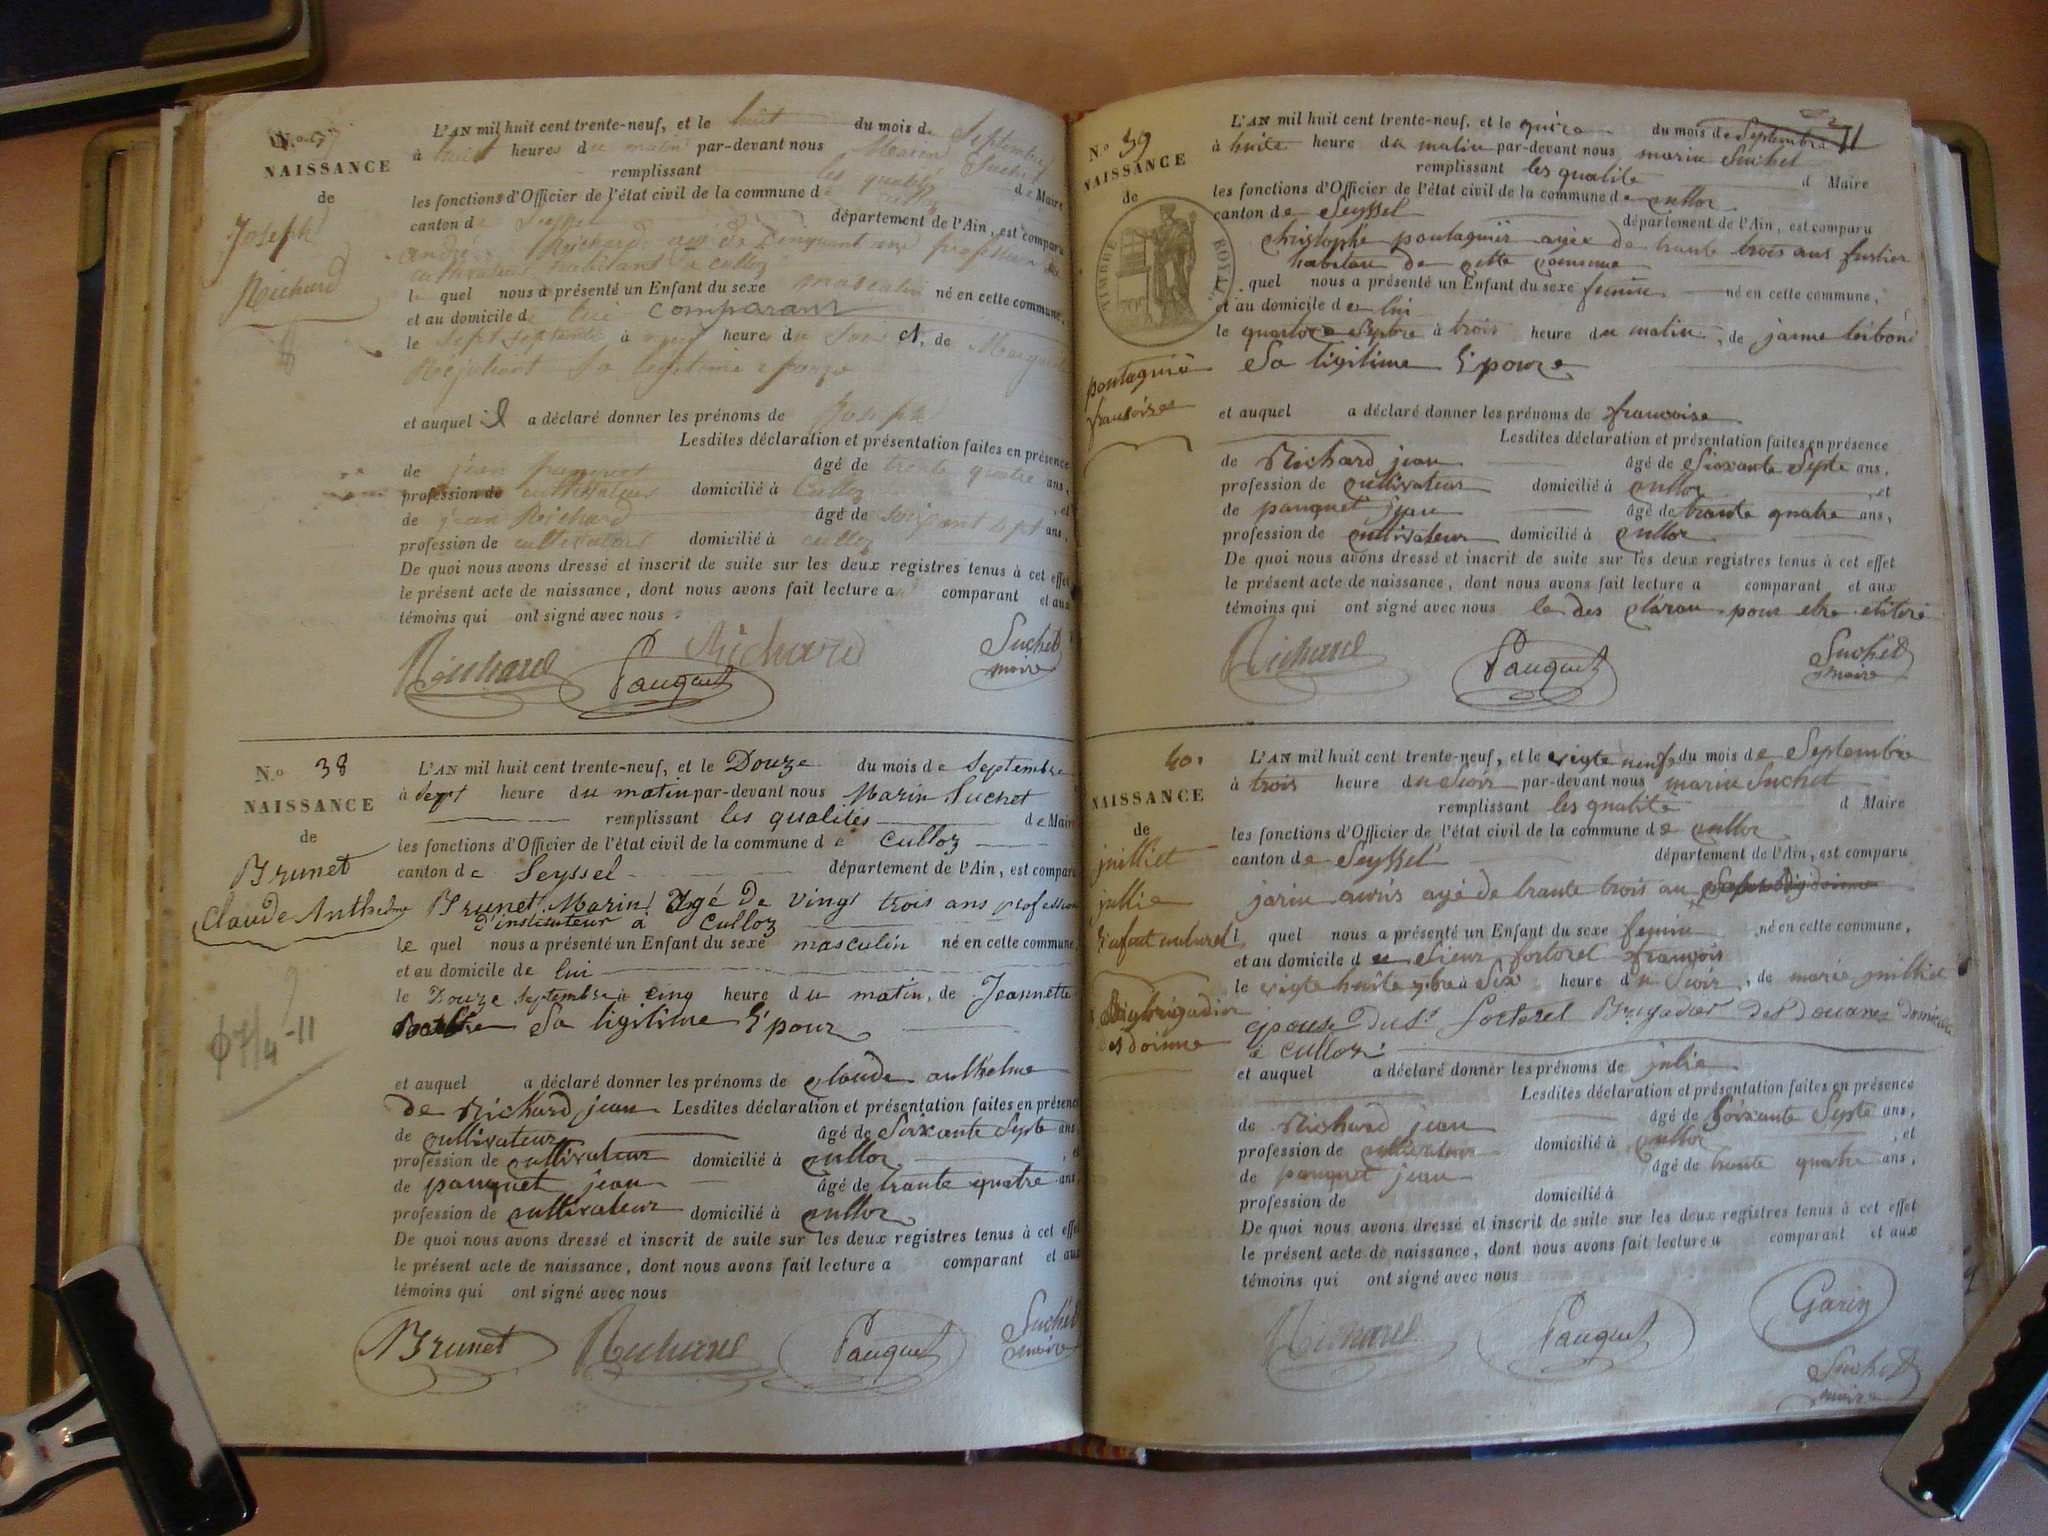 N.o 37
NAISSANCE
de
Joseph
Richard
L'AN mil huit cent trente-neuf, et le huit du mois de Septembre
à huit heures du matin par-devant nous Marin Suchet
remplissant les qualités de Maire
les fonctions d'Officier de l'état civil de la commune de culloz
canton de Seyssel département de l'Ain, est comparu
andré Richard agé de Cinquant ans profession de
cultivateur habitant à culloz
le quel nous a présenté un Enfant du sexe masculin né en cette commune,
et au domicile de lui comparant
le sept septembre à heure du soir et, de
sa legitime epouze
et auquel il a déclaré donner les prénoms de Joseph
Lesdites déclaration et présentation faites en présence
de jean âgé de trente quatre ans,
profession de cultivateur domicilié à Culloz , et
de jean Richard âgé de soixant sept ans,
profession de cultivateur domicilié à culloz
De quoi nous avons dressé et inscrit de suite sur les deux registres tenus à cet effet
le présent acte de naissance, dont nous avons fait lecture au comparant et aux
témoins qui ont signé avec nous.
Richard Pauquet Richard Suchet
maire
N.o 38
NAISSANCE
de
Brunet
Claude Anthelme
L'AN mil huit cent trente-neuf, et le Douze du mois de Septembre
à Sept heure du matin par-devant nous Marin Suchet
remplissant les qualités de Maire
les fonctions d'Officier de l'état civil de la commune de culloz
canton de Seyssel département de l'Ain, est comparu
Brunet Marin Agé De vingt trois ans profession
d'instituteur à Culloz
le quel nous a présenté un Enfant du sexe masculin né en cette commune,
et au domicile de lui
le Douze Septembre à cinq heure du matin, de Jeannette
Sa ligitime Epour
et auquel a déclaré donner les prénoms de claude anthelme
de Richard jean Lesdites déclaration et présentation faites en présence
de cultivateur âgé de Soixante Septe ans,
profession de cultivateur domicilié à culloz , et
de pauquet jean âgé de trante quatre ans,
profession de cultivateur domicilié à culloz
De quoi nous avons dressé et inscrit de suite sur les deux registres tenus à cet effet
le présent acte de naissance, dont nous avons fait lecture a comparant et aux
témoins qui ont signé avec nous
Brunet Richard Pauquet Suchet
maire
N.o 39
NAISSANCE
de
TIMBRE ROYAL
poutagnié
fransoize
L'AN mil huit cent trente-neuf, et le quinze du mois de Septembre
à huite heure du matin par-devant nous marin Suchet
remplissant les qualite d Maire
les fonctions d'Officier de l'état civil de la commune de culloz
canton de Seyssel département de l'Ain, est comparu
christophe poutagnier agée de trante trois ans
habitan de cette commune
l quel nous a présenté un Enfant du sexe feminin né en cette commune,
et au domicile de lui
le quatorze à trois heure du matin, de janne
Sa ligitime Epouze
et auquel a déclaré donner les prénoms de francoise
Lesdites déclaration et présentation faites en présence
de Richard jean âgé de Sioxante Septe ans,
profession de cultivateur domicilié à culloz , et
de pauquet jean âgé de trante quatre ans,
profession de cultivateur domicilié à culloz
De quoi nous avons dressé et inscrit de suite sur les deux registres tenus à cet effet
le présent acte de naissance, dont nous avons fait lecture a comparant et aux
témoins qui ont signé avec nous le des claran pour etre
Richard Pauquet Suchet
maire
40.
NAISSANCE
de
juilliet
jullie
Enfant naturel
L'AN mil huit cent trente-neuf, et le vigte neuf du mois de Septembre
à trois heure du Soir par-devant nous marin Suchet
remplissant les qualite d Maire
les fonctions d'Officier de l'état civil de la commune de culloz
canton de Seyssel département de l'Ain, est comparu
agé de trante trois an
l quel nous a présenté un Enfant du sexe feminin né en cette commune,
et au domicile du Sieur fortoret francois
le vigte huite à Six heure du Soir, de marie juilliet
epouse Du Sr fortorel Brigadier des Douanes
à culloz
et auquel a déclaré donner les prénoms de julie
Lesdites déclaration et présentation faites en présence
de Richard jean âgé de Soixante Septe ans,
profession de cultivateur domicilié à culloz , et
de pauquet jean âgé de trante quatre ans,
profession de domicilié à
De quoi nous avons dressé et inscrit de suite sur les deux registres tenus à cet effet
le présent acte de naissance, dont nous avons fait lecture a comparant et aux
témoins qui ont signé avec nous
Richard Pauquet Garin
Suchet
maire